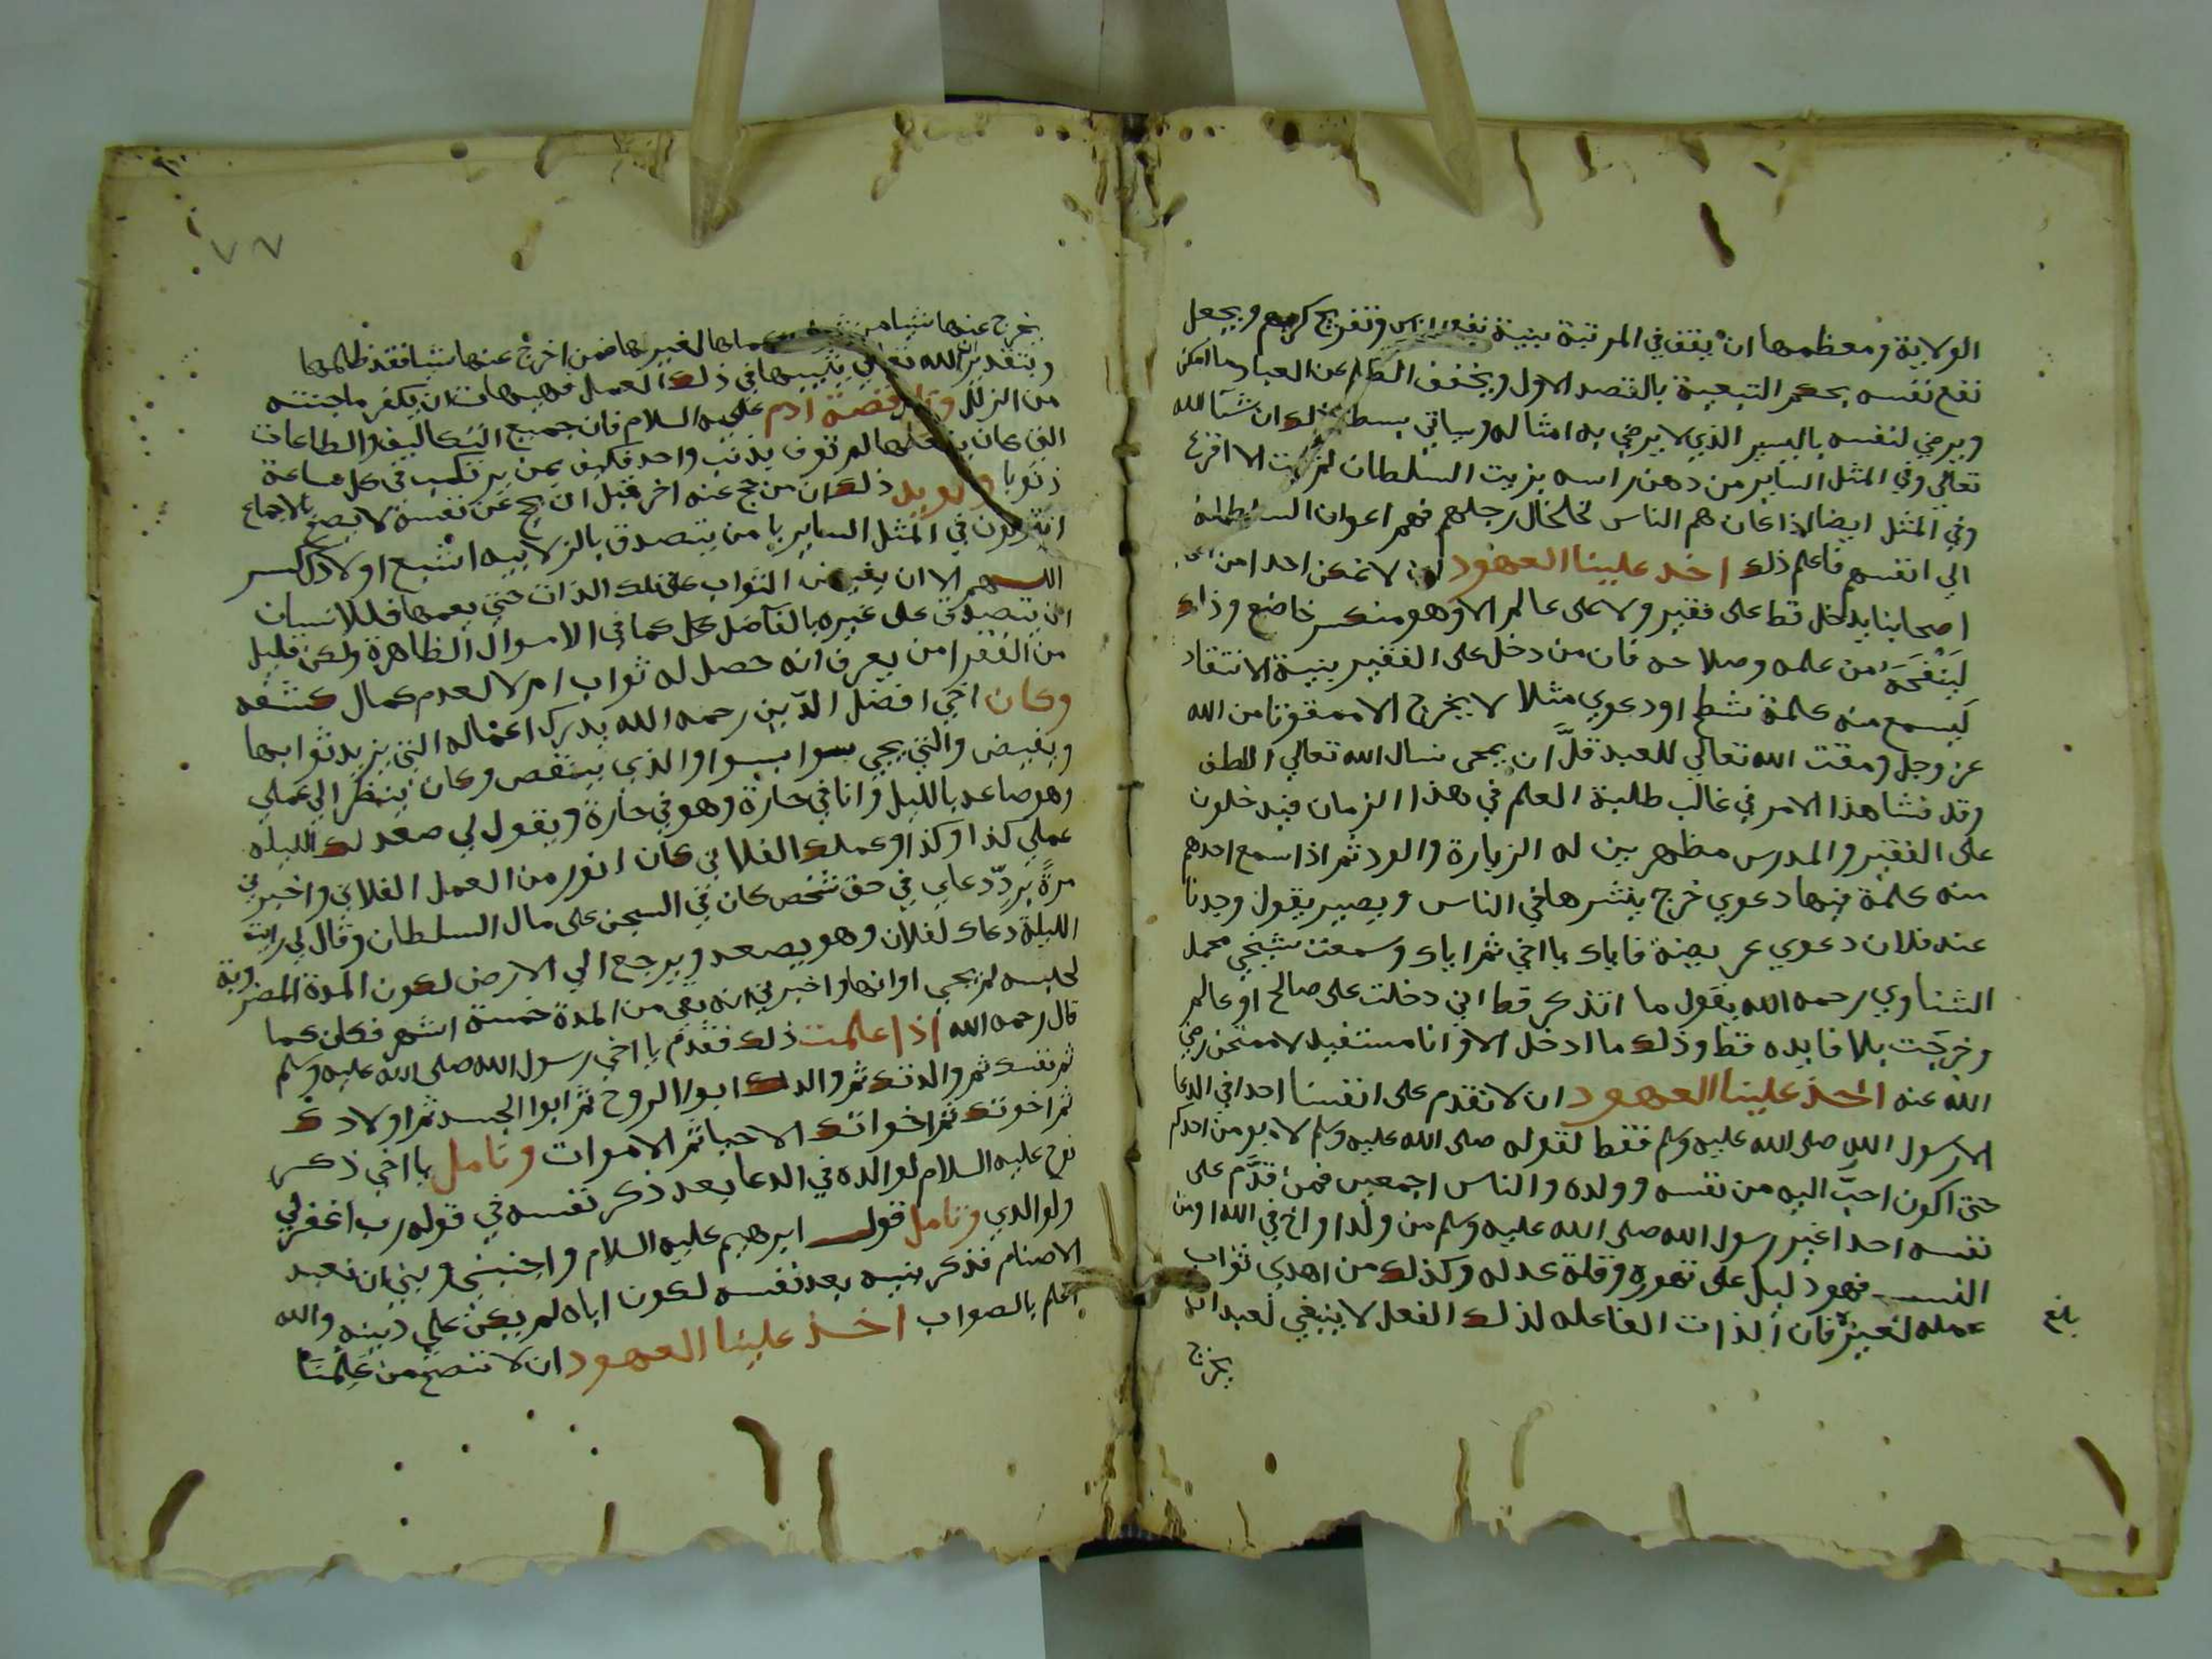 الولاية ومعظمها ان يقف في المرتبة بنية نفع الناس وتفريج كربهم ويجعل
نفع نفسه بحكم التبعية بالقصد الاول ويخفف الظلم عن العباد ما امكن
ويرضي لنفسه باليسير الذي لا يرضي به امثاله وسياتي بسط ذلك ان شا الله
تعالي وفي المثل الساير من دهن راسه بزيت السلطان لم الا اقرع
وفي المثل ايضا اذا كان هم الناس تخلخال رجلهم فهم اعوان السلطان
الي انفسهم فاعلم ذلك اخذ علينا العهود ان لا نمكن احدا من
اصحابنا يدخل قط على فقير ولا على عالم الا وهو منكسر خاضع وذلك
لينفحه من علمه وصلاحه فان من دخل على الفقير بنية الانتقاد
ليسمع منه كلمة شطح او دعوي مثلا لا يخرج الا ممقوتا من الله
عز وجل ومقت الله تعالي للعبد قل ان يمحي نسال الله تعالي اللطف
وقد فشا هذا الامر في غالب طلبة العلم في هذا الزمان فيدخلون
على الفقير والمدرس مظهرين له الزيارة والود ثم اذا سمع احدهم
منه كلمة فيها دعوي خرج ينشرها في الناس ويصير يقول وجدنا
عند فلان دعوي عريضة فاياك يا اخي ثم اياك وسمعت شيخي محمد
الشناوي رحمه الله يقول ما اتذكر قط اني دخلت على صالح او عالم
وخرجت بلا فايده قط وذلك ما ادخل الا وانا مستفيد لا ممتحن رضي
الله عنه اخذ علينا العهود ان لا نقدم على انفسنا احدا في الدعا
الا رسول الله صلى الله عليه وسلم فقط لقوله صلى الله عليه وسلم لا يومن احدكم
حتى اكون احب اليه من نفسه وولده والناس اجمعين فمن قدم على
نفسه احدا غير رسول الله صلى الله عليه وسلم من ولد او اخ في الله او من
النسب فهو دليل على تهوره وقلة عدله وكذلك من اهدي ثواب
عمله لغيره فان الذات الفاعله لذلك الفعل لا ينبغي لعبد ان
بلغ
يخرج
٧٧
يخرج عنها شيا من لغيرها فمن اخرج عنها شيا فقد ظلمها
وبتقدير ان الله تعالي يثيبها في ذلك العمل فهيهات ان يكفر ما جنته
من الزلل وتامل قصة ادم عليه السلام فان جميع التكاليف والطاعات
التي كان يفعلها لم توف بذنب واحد فكيف بمن يرتكب في كل ساعة
ذنوبا ويويد ذلك ان من حج عنه اخر قبل ان يحج عن نفسه لا يصح بالاجماع
في المثل الساير يا من يتصدق بالزلابيه اشبع اولادك كسر
اللهم الا ان يفيض الثواب على تلك الذات حتى يعمها فللانسان
ان يتصدق على غيره بالفاضل كل كما في الاموال الظاهرة ولكن قليل
من الفقرا من يعرف انه حصل له ثواب ام لا لعدم كمال كشفه
وكان اخي افضل الدين رحمه الله يدرك اعماله التي يزيد ثوابها
ويفيض والتي يجي سوا بسوا والذي ينقص وكان ينظر الي عملي
وهو صاعد بالليل وانا في حارة وهو في حارة ويقول لي صعد لك الليله
عملي كذا وكذا وعملك الفلاني كان انور من العمل الفلاني واخبرني
مرة برد دعاي في حق شخص كان في السجن على مال السلطان وقال لي رايت
الليلة دعاك لفلان وهو يصعد ويرجع الي الارض لكون المدة المضروبة
لحبسه لم يجي اوانها واخبرني انه بقي من المدة خمسة اشهر فكان كما
قال رحمه الله اذا علمت ذلك فقدم يا اخي رسول الله صلى الله عليه وسلم
ثم نفسك ثم والدتك ثم والدك ابوا الروح ثم ابوا الجسد ثم اولادك
ثم اخوتك ثم اخوانك الاحيا ثم الاموات وتامل يا اخي ذكر
نوح عليه السلام لوالده في الدعا بعد ذكر نفسه في قوله رب اغفر لي
ولوالدي وتامل قول ابرهيم عليه السلام واجنبني وبني ان نعبد
الاصنام فذكر بنيه بعد نفسه لكون اباه لم يكن على دينه والله
اعلم بالصواب اخذ علينا العهود ان لا ننصح من علمنا